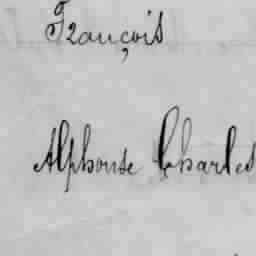 François
Alphonse Charles